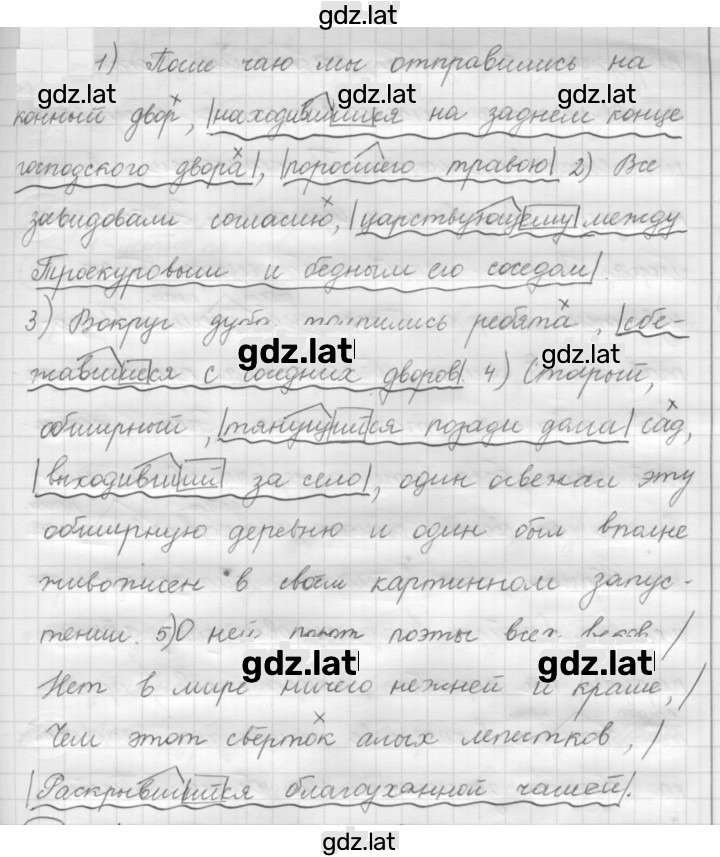 gdz.lat
1) После чаю мы отправились на
gdz.lat gdz.lat gdz.lat
конный двор, |находившийся на заднем конце
господского двора|, |поросшего травою| 2) Все
завидовали согласию, |царствующему между
Троекуровым и бедным его соседом|.
3) Вокруг дуба толпились ребята, |сбе-
gdz.lat gdz.lat
жавшиеся с соседних дворов|. 4) Старый,
обширный, |тянущийся позади дома| сад,
|выходивший за село|, один освежал эту
обширную деревню и один был вполне
живописен в своём картинном запус-
тении. 5) О ней поют поэты всех веков. /
gdz.lat gdz.lat
Нет в мире ничего нежней и краше, /
Чем этот свёрток алых лепестков, /
|Раскрывшийся благоуханной чашей|.
gdz.lat